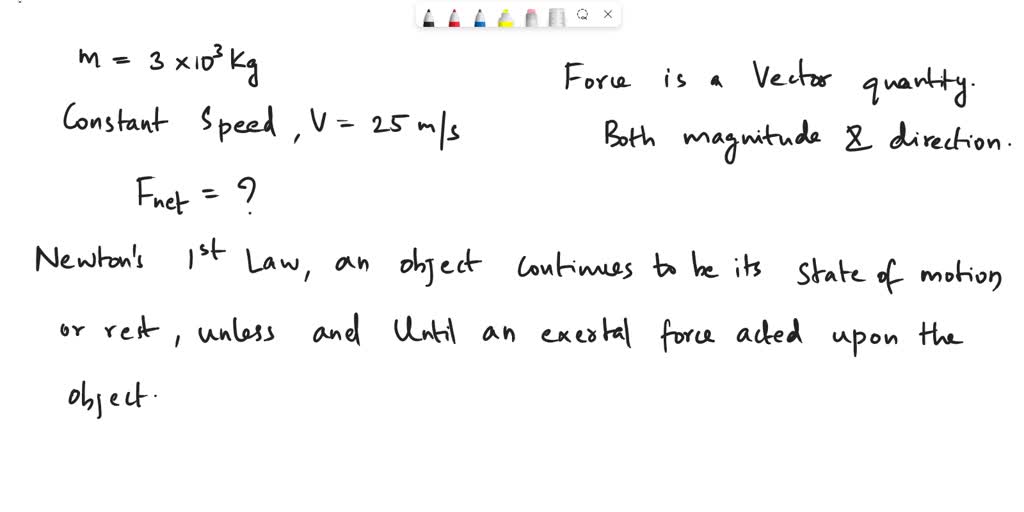 m = 3 ×10³ Kg
Constant Speed, V = 25 m/s
Fnet = ?
Force is a Vector quantity.
Both magnitude & direction.
Newton's 1st Law, an object continues to be its state of motion
or rest, unless and Until an exertal force acted upon the
object.